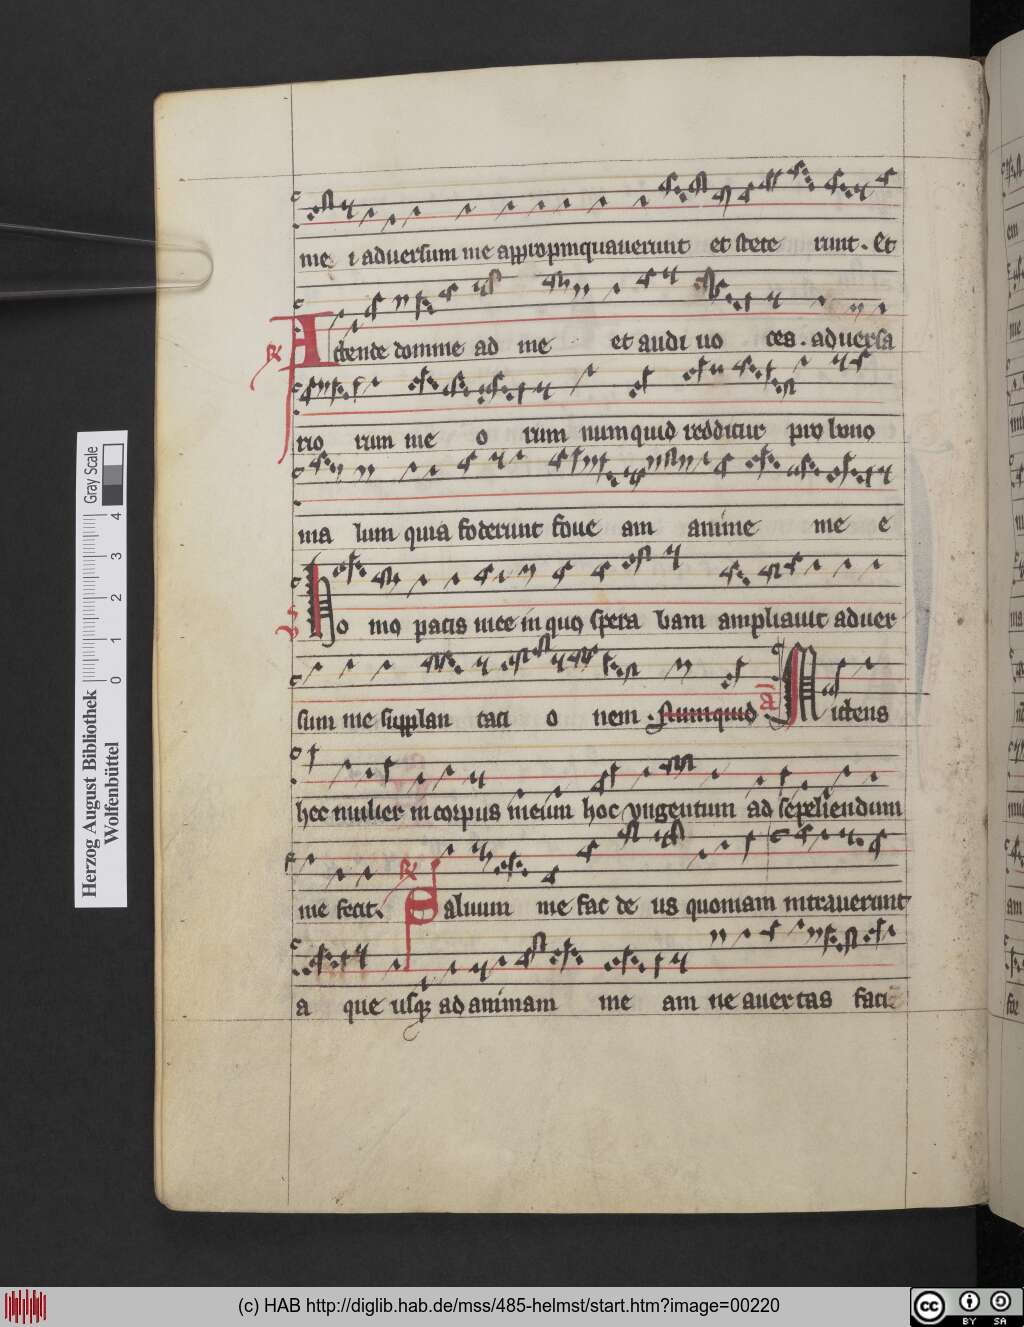 me i aduersum me appropinquauerunt et stete runt . Et
℟ Attende domine ad me et audi uo ces . aduersa
rio rum me o rum numquid redditur pro bono
ma lum quia foderunt foue am anime me e
℣ Homo pacis mee in quo spera bam ampliauit aduer
sum me supplan taci o nem . Numquid Mittens
hec mulier in corpus meum hoc vngentum ad sepeliendum
me fecit. ℟ Saluum me fac de us quoniam intrauerunt
a que usq; ad animam me am ne auertas faci
Herzog August Bibliothek
Wolfenbüttel
0 1 2 3 4
Gray Scale
(c) HAB http://diglib.hab.de/mss/485-helmst/start.htm?image=00220
cc BY SA